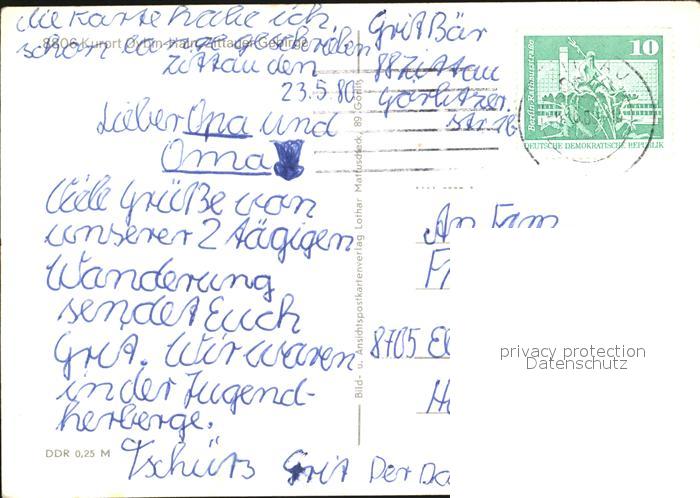 die Karte habe ich
schon lange geschrieben
8806 Kurort Oybin-Hain, Zittauer Gebirge
Zittau den
23.5.80
Grit Bär
88 Zittau
Görlitzer.
Str. 16
Lieber Opa und
Oma
Viele Grüße von
unserer 2 tägigen
Wanderung
sendet Euch
Grit. Wir waren
in der Jugend-
herberge.
Tschüß Grit
DDR 0,25 M
Bild- u. Ansichtspostkartenverlag Lothar Mattuscheck, 89 Görlitz
10
Berlin, Rathausstraße
DEUTSCHE DEMOKRATISCHE REPUBLIK
An Fam
8705
privacy protection
Datenschutz